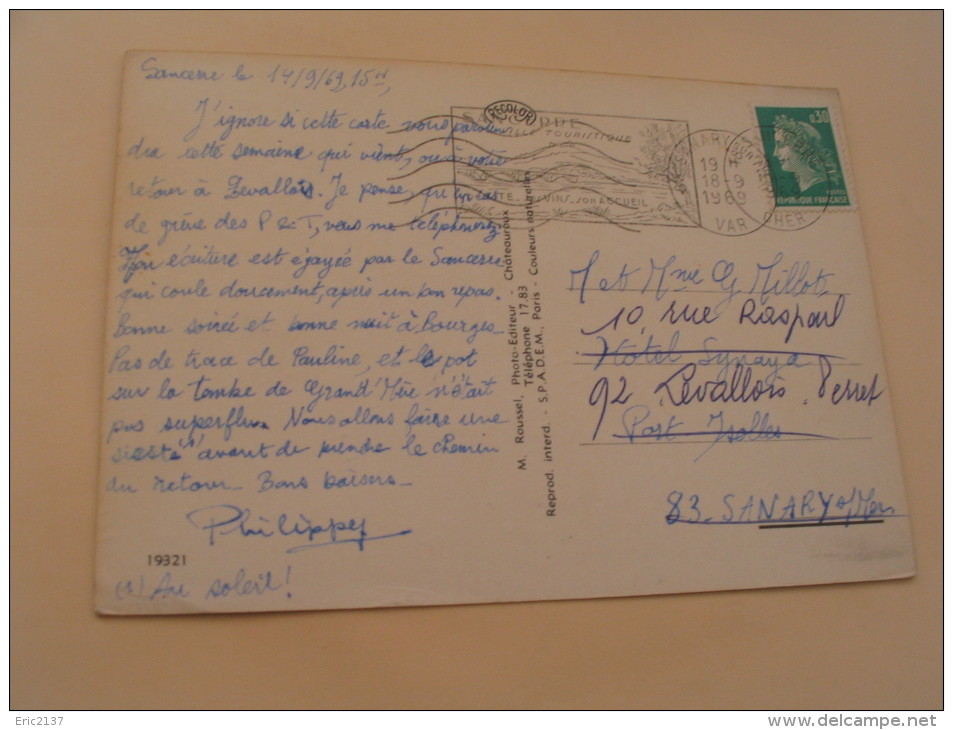 Sancerre le 14/9/69, 15H,
J'ignore si cette carte vous parvien
dra cette semaine qui vient, ou à votre
retour à Levallois. Je pense, qu'en cas
de grève des P & T, vous me téléphonerez
Mon écriture est égayée par le Sancerre
qui coule doucement, après un bon repas.
Bonne soirée et bonne nuit à Bourges
Pas de trace de Pauline, et le pot
sur la tombe de Grand'Mère n'était
pas superflu. Nous allons faire une
sieste avant de prendre le chemin
du retour _ Bons baisers _
Philippe
19321
Au soleil!
M. Roussel, Photo-Editeur - Châteauroux
Téléphone 17.83
Reprod. interd. - S.P.A.D.E.M., Paris - Couleurs naturelles
RECOLOR
VILLE TOURISTIQUE
VINS SON ACCUEIL
SANARY
19 H
18-9
1969
VAR
CHER
0,30
REPUBLIQUE FRANÇAISE
M et Mme G Millot
10, rue Raspail
Hotel Synaya
92 Levallois . Perret
Port Issolles
83_SANARY s/Mer
Eric2137
delcampe.net